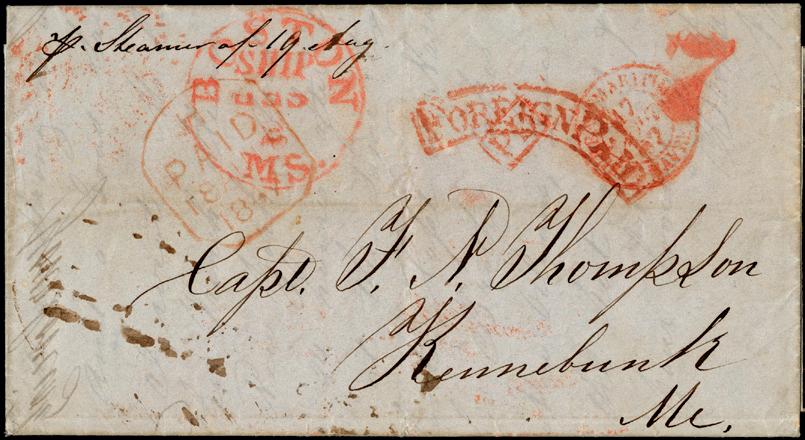 pr. Steamer of 19 Aug.
BOSTON
SHIP
MS.
PAID
FOREIGN PAID
P
7
Capt. F. N. Thompson
Kennebunk
Me.